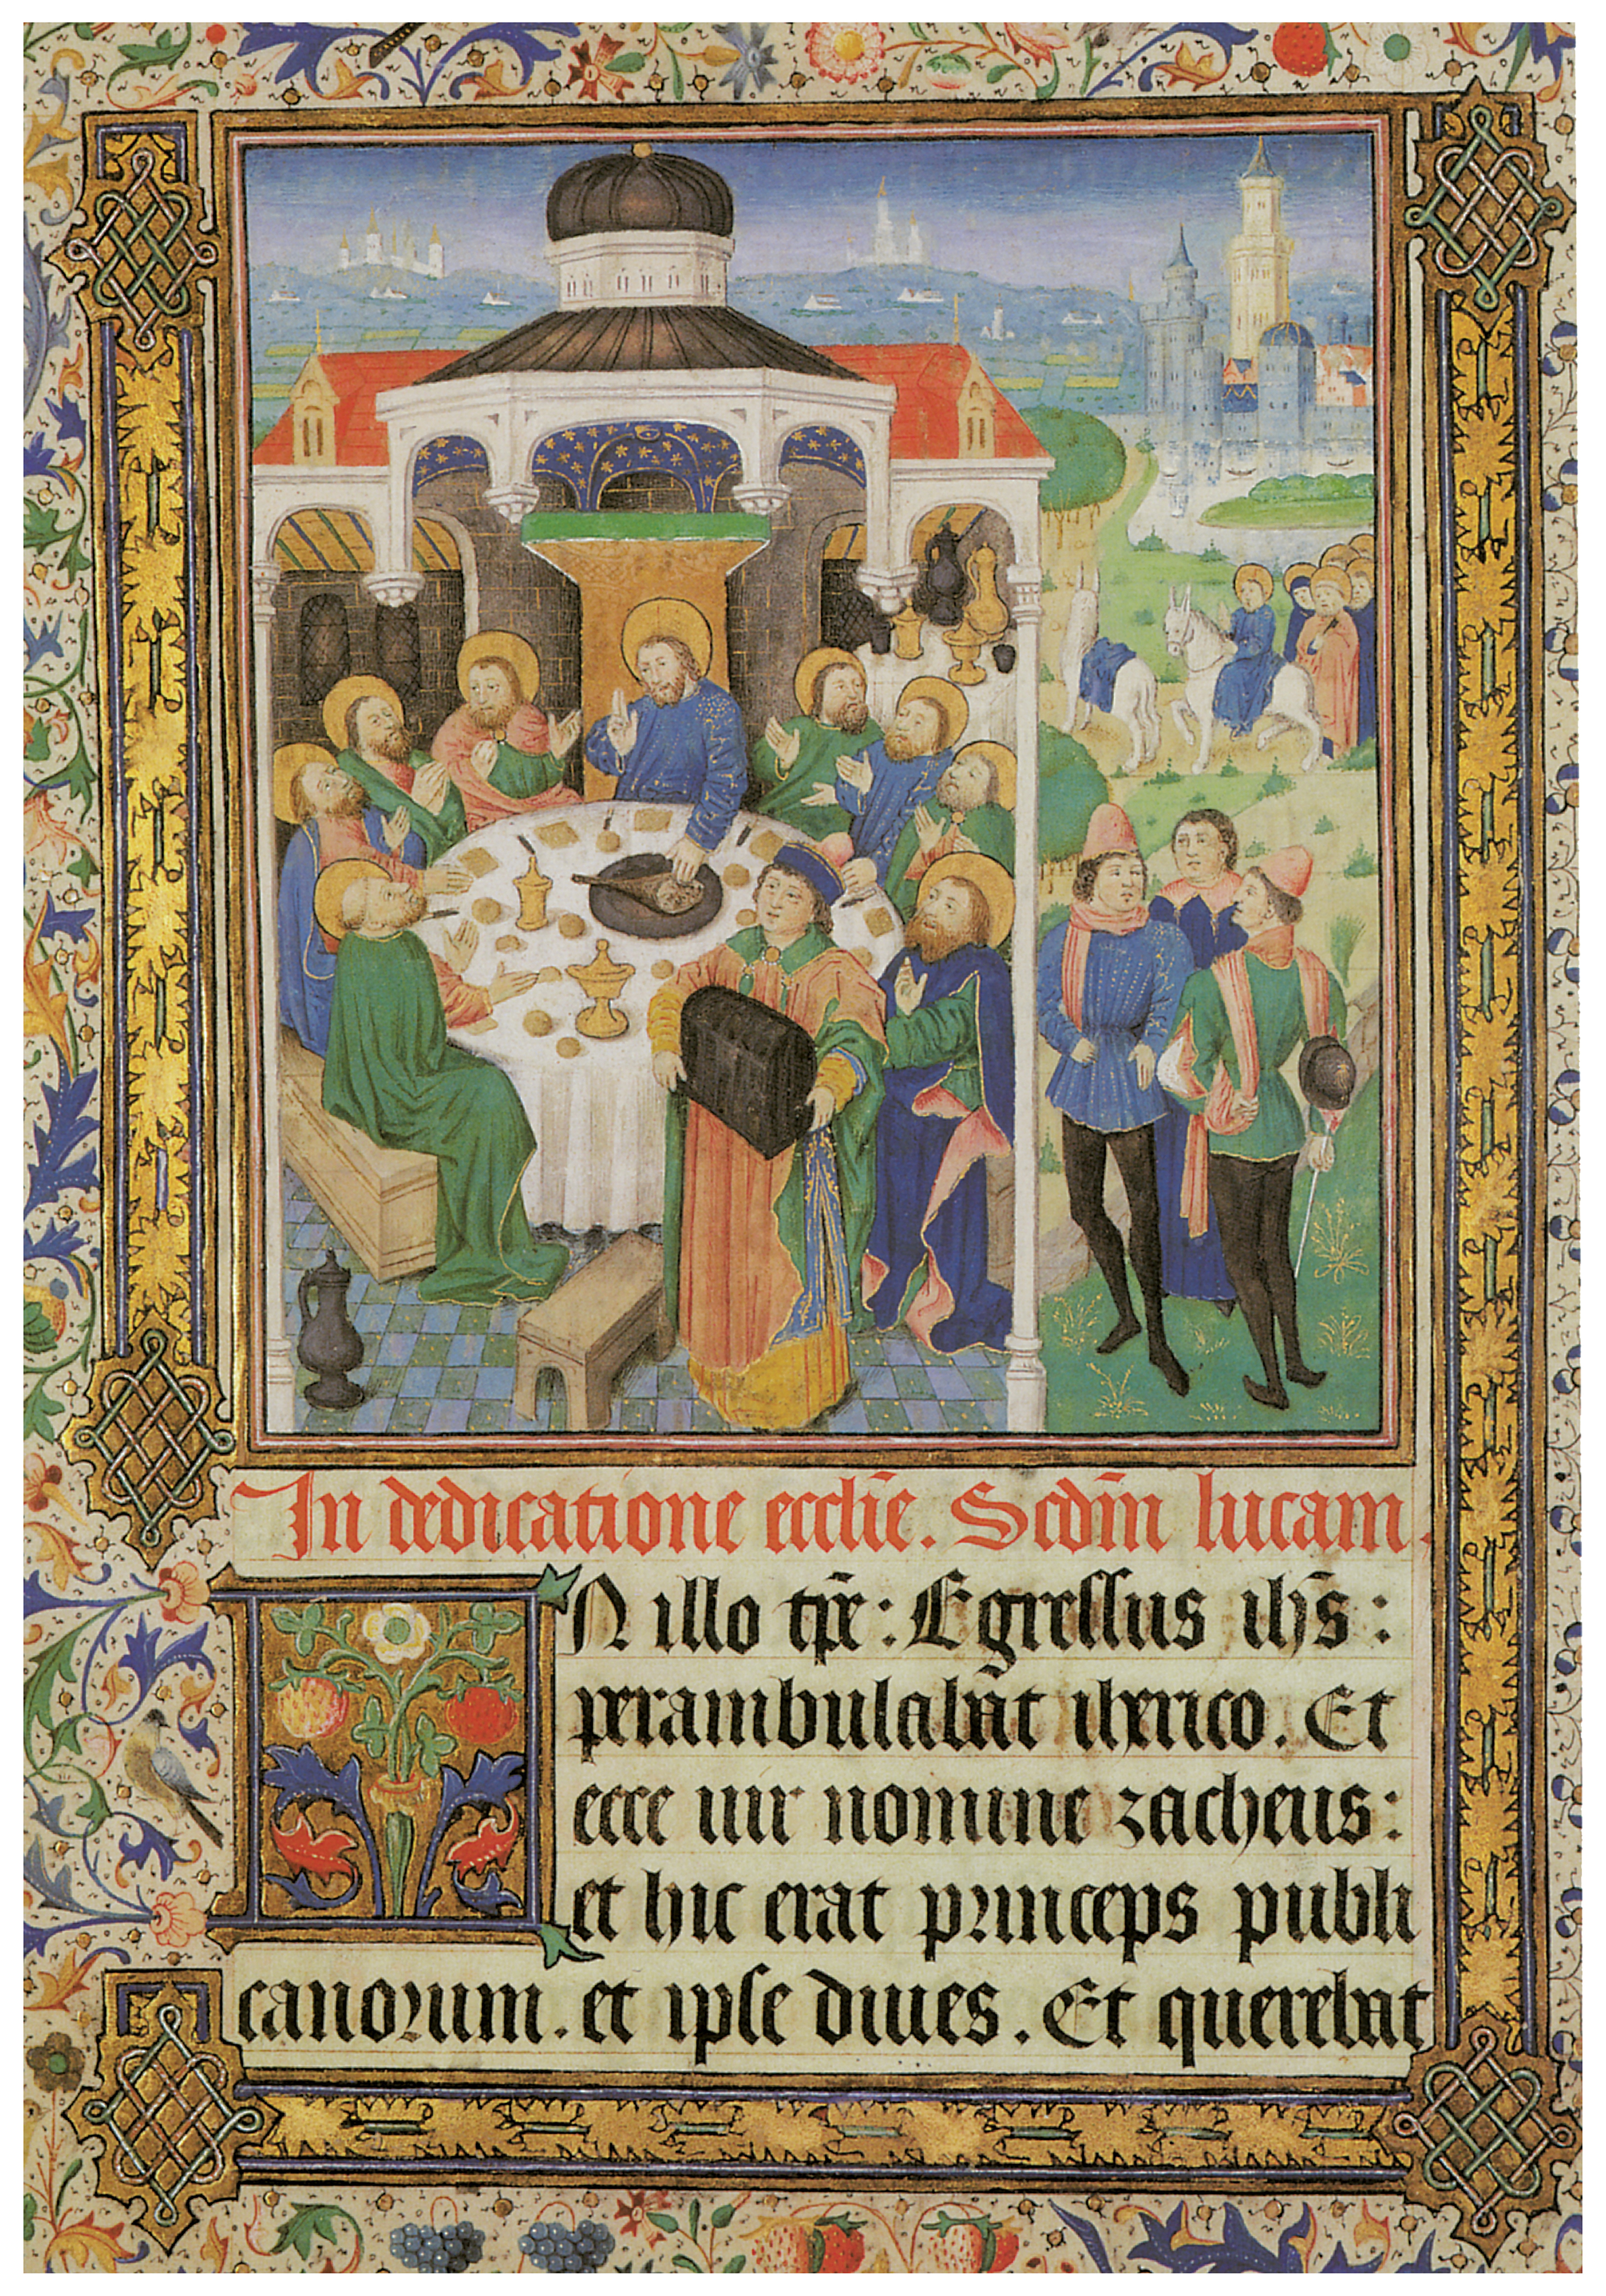 In dedicatione ecclīe. Scdm̄ lucam.
N illo tp̄re: Egressus ihs̄:
perambulabāt iherico. Et
ecce uir nomine zacheus:
et hic erat princeps publi
canorum. et ipse diues. Et querebat